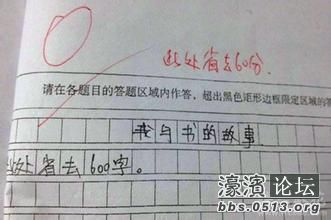 此处省去60分.
请在各题目的答题区域内作答，超出黑色矩形边框限定区域的答
我与书的故事
此处省去600字。
濠滨 论坛
bbs.0513.org